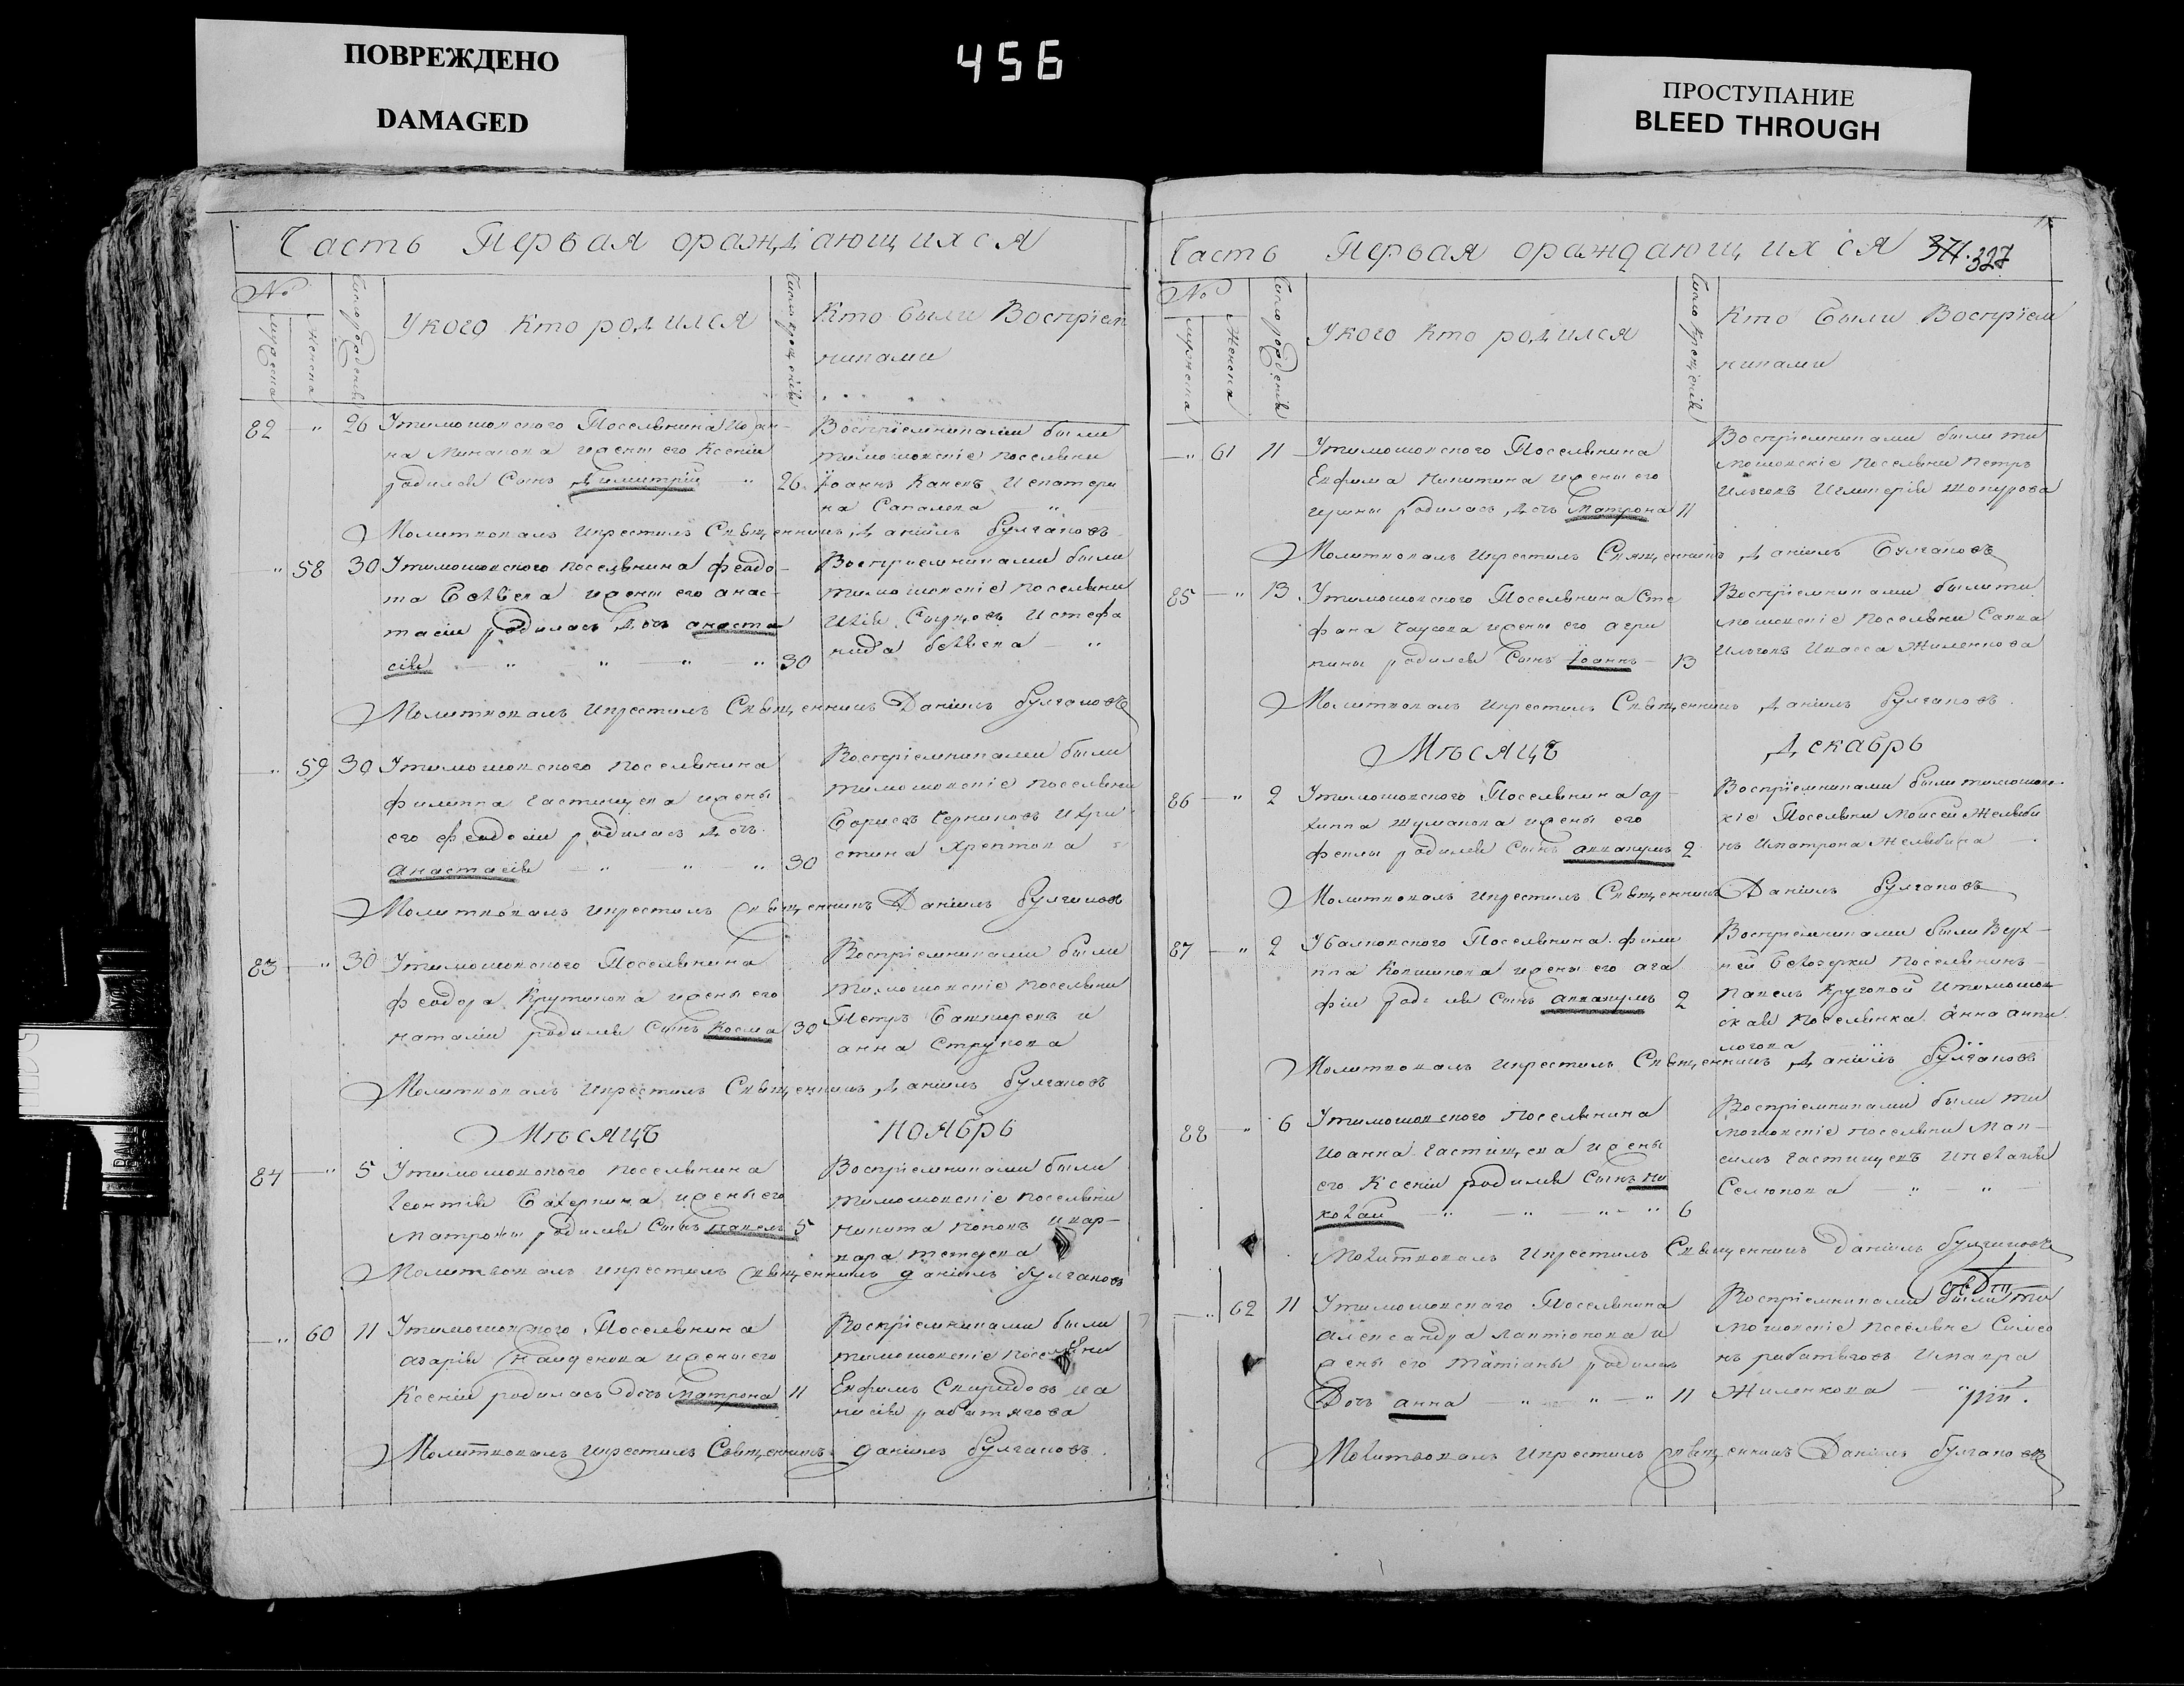 ПОВРЕЖДЕНО
DAMAGED
456
ПРОСТУПАНИЕ
BLEED THROUGH
Часть Первая ораждающихся
№
мужеска
женска
Число рожденія
Укого кто родился
Число крещенія
Кто были Воспріем
никами
82 — " 26 Утимошовского Поселянина Иоан-
на Минакова ижены его Ксеніи
родился Сынъ Димитрій — " 26
Воспріемниками были
тимошовскіе поселяни
Іоаннъ Каневъ Иекатери
на Сапалева — "
Молитвовалъ икрестилъ Священникъ Даніилъ булгаковъ
" 58 30 Утимошовского поселянина феодо-
та Беляева ижены его анас-
тасіи родилась Дочь анаста
сія — " — " — " — " 30
Воспріемниками были
тимошовскіе поселяни
Илія Сыуцовъ Истефа
нида беляева — "
Молитвовалъ икрестилъ Священникъ Даніилъ булгаковъ
" 59 30 Утимошовского поселянина
филиппа частищева ижены
его феодосіи родилась Дочь
Анастасія — " — " — " 30
Воспріемниками были
тимошовскіе поселяни
Борисъ Черниковъ Ихри
стина Хрептова "
Молитвовалъ икрестилъ Священникъ Даніилъ булгаковъ
83 — " 30 Утимошовского Поселянина
феодора Крутикова ижены его
наталіи родился Сынъ Косма 30
Воспріемниками были
тимошовскіе поселяни
Петръ Башкиревъ и
анна Струкова
Молитвовалъ икрестилъ Священникъ Даніилъ булгаковъ
Мѣсяцъ ноябрь
84 — " 5 Утимошовского поселянина
Леонтія Бахеркина ижены его
Матроны родился Сынъ павелъ 5
Воспріемниками были
тимошовскіе поселяни
никита поповъ ивар-
вара
Молитвовалъ икрестилъ священникъ даніилъ булгаковъ
— " 60 11 Утимошовского Поселянина
азарія Найденова ижены его
Ксеніи родилась дочь Матрона 11
Воспріемниками были
тимошовскіе поселяни
Ефимъ Спиридовъ иа
нисія работягова
Молитвовалъ икрестилъ Священникъ даніилъ булгаковъ
Часть Первая ораждающихся 371. 327
№
мужеска
Женска
Число рожденія
Укого кто родился
Число Крещенія
Кто были Воспріем
никами
— " 61 11 Утимошовского Поселянина
Ефима Никитина ижены его
ирины родилась Дочь Матрона 11
Воспріемниками были ти
мошовскіе поселяни петръ
Ильговъ Игликерія Шопурова
Молитвовалъ икрестилъ Священникъ Даніилъ Булгаковъ
85 — " 13 Утимошовского Поселянина Сте
фана Чаусова ижены его агри
пины родился Сынъ Іоаннъ — 13
Воспріемниками были ти
мошовскіе поселяни Савва
Ильговъ Ивасса Жиленкова
Молитвовалъ икрестилъ Священникъ Даніилъ булгаковъ
Мѣсяцъ Декабрь
86 — " 2 Утимошовского Поселянина ар-
хиппа шумакова ижены его
феклы родился Сынъ аввакумъ 2
Воспріемниками были тимошовс-
кіе Поселяни Моисей Желяби
нъ Иматрона Желябина —
Молитвовалъ икрестилъ Священникъ Даніилъ булгаковъ
87 — " 2 Убалковского Поселянина фили
ппа Ковшикова ижены его ага
фіи родился Сынъ аввакумъ 2
Воспріемниками были Верх-
ней Белозерки поселянинъ
павелъ Круговой Итимошов
ская поселянка анна анпи
логова
Молитвовалъ икрестилъ Священникъ Даніилъ булгаковъ
88 — " 6 Утимошовского поселянина
иоанна частищева ижены
его Ксеніи родился Сынъ ни
колай — " — " — " — " 6
Воспріемниками были ти
мошовскіе поселяни Мак-
симъ частищевъ Ипелагія
Селюкова — " — "
Молитвовалъ икрестилъ Священникъ даніилъ булгаковъ
— " 62 11 Утимошовскаго Поселянина
александра лактіонова и
жены его татіаны родилась
Дочь анна — " — " — " 11
Воспріемниками были ти
мошовскіе поселяне Симео
нъ работяговъ Имавра
Жиленкова — "
Молитвовалъ икрестилъ священникъ Даніилъ булгаковъ